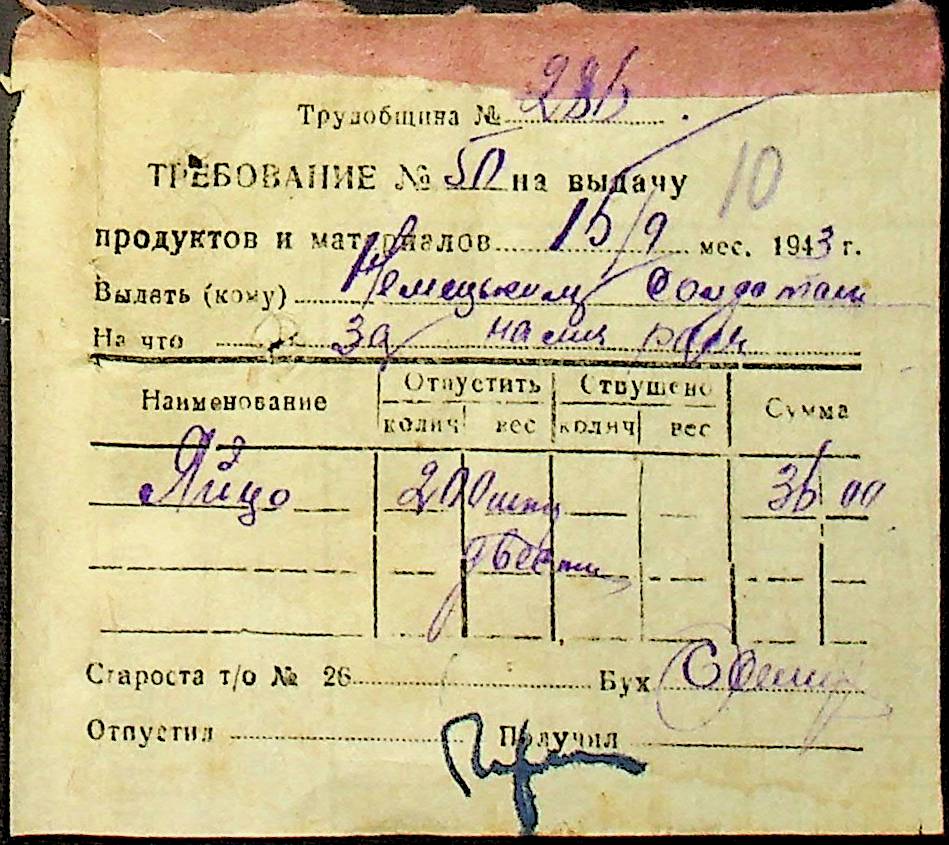 Трудобщина № 286
ТРЕБОВАНИЕ № 50 на выдачу
10
продуктов и материалов 15/9 мес. 1943 г.
Выдать (кому) Немецьким солдатам
На что За
Наименование Отпустить Отпущено Сумма
колич вес колич вес
Яйцо 200 штук 36 00
двести
Староста т/о № 26 Бух
Отпустил Получил